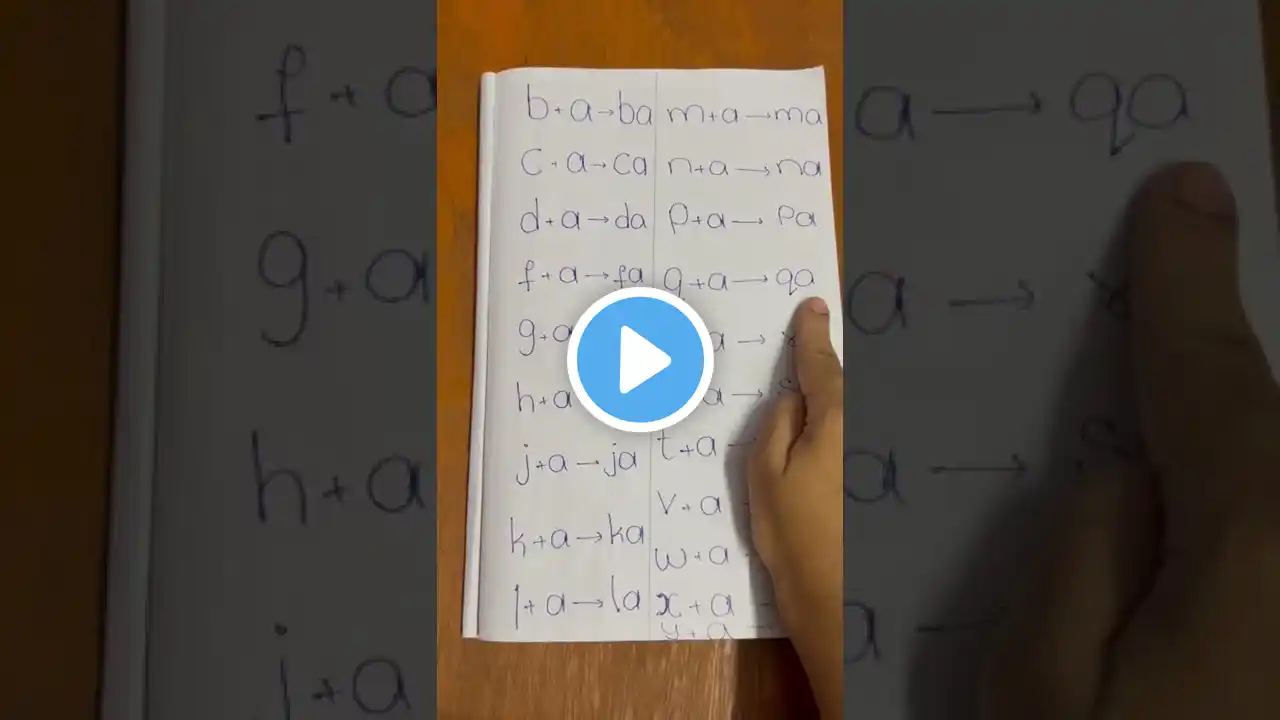 b+a→ba
c+a→ca
d+a→da
f+a→fa
g+a
h+a
j+a→ja
k+a→ka
l+a→la
m+a→ma
n+a→na
p+a→pa
q+a→qa
a→
a→
t+a→
v+a
w+a
x+a
y+a